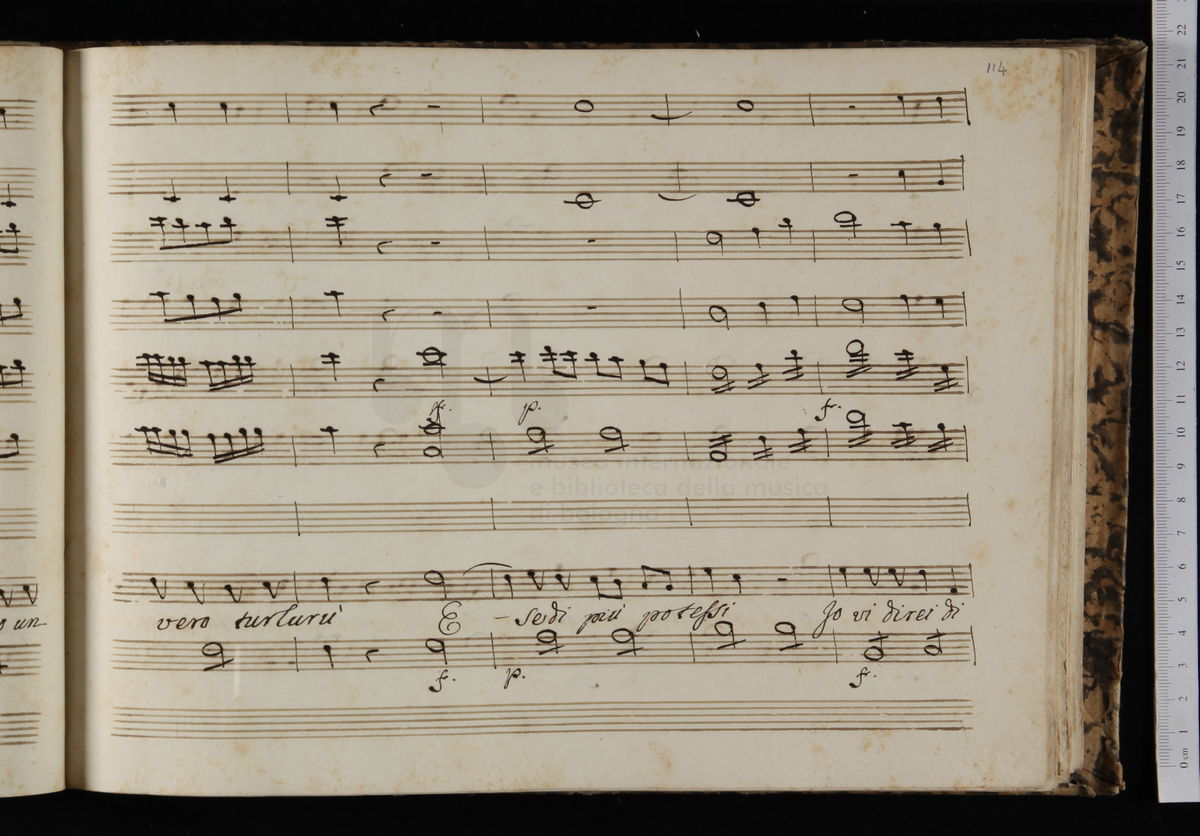 114
f. p. f.
museo internazionale
e biblioteca della musica
di bologna
o un vero turlurù E - se di più potessi Io vi direi di
f. p. f.
22
21
20
19
18
17
16
15
14
13
12
11
10
9
8
7
6
5
4
3
2
1
0 cm